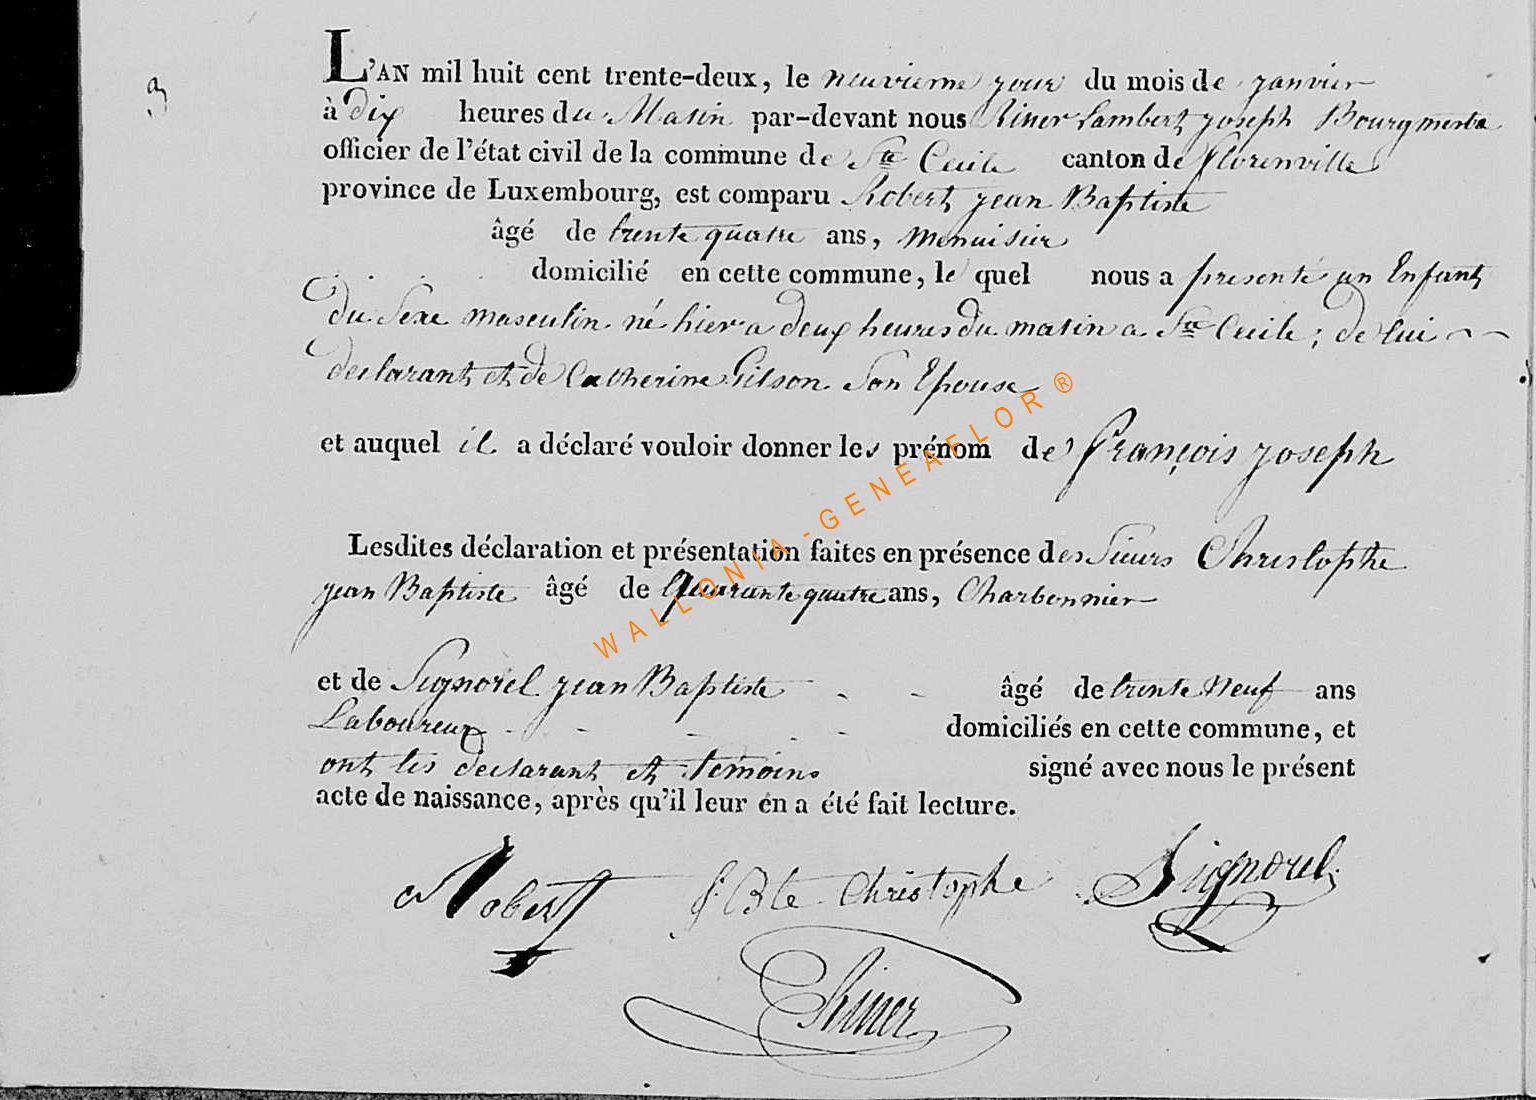 3
L'AN mil huit cent trente-deux, le neuvieme jour du mois de janvier
à dix heures du Matin par-devant nous Riner Lambert joseph Bourgmestre
officier de l'état civil de la commune de Ste Cecile canton de florenville
province de Luxembourg, est comparu Robert jean Baptiste
âgé de trente quatre ans, Menuisier
domicilié en cette commune, le quel nous a presenté un Enfant
du Sexe masculin né hier a deux heures du matin a Ste Cecile; de lui
declarant et de Catherine Gilson Son Epouse
et auquel il a déclaré vouloir donner les prénom de françois joseph
Lesdites déclaration et présentation faites en présence des Sieurs Christophe
jean Baptiste âgé de Quarante quatre ans, Charbonnier
et de Signorel jean Baptiste âgé de trente Neuf ans
Laboureur domiciliés en cette commune, et
ont les declarant et temoins signé avec nous le présent
acte de naissance, après qu'il leur en a été fait lecture.
Robert J. Bte Christophe Signorel
Riner
WALLONIA-GENEAFLOR®